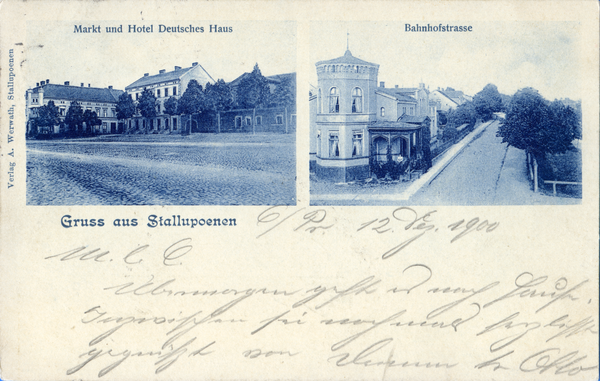 Markt und Hotel Deutsches Haus
Bahnhofstrasse
Verlag A. Werwath, Stallupoenen
Gruss aus Stallupoenen
O/Pr. 12. Dez. 1900
M. l. C.
Übermorgen geht es nach Hause.
Inzwischen sei nochmals herzlichst
gegrüßt von Otto